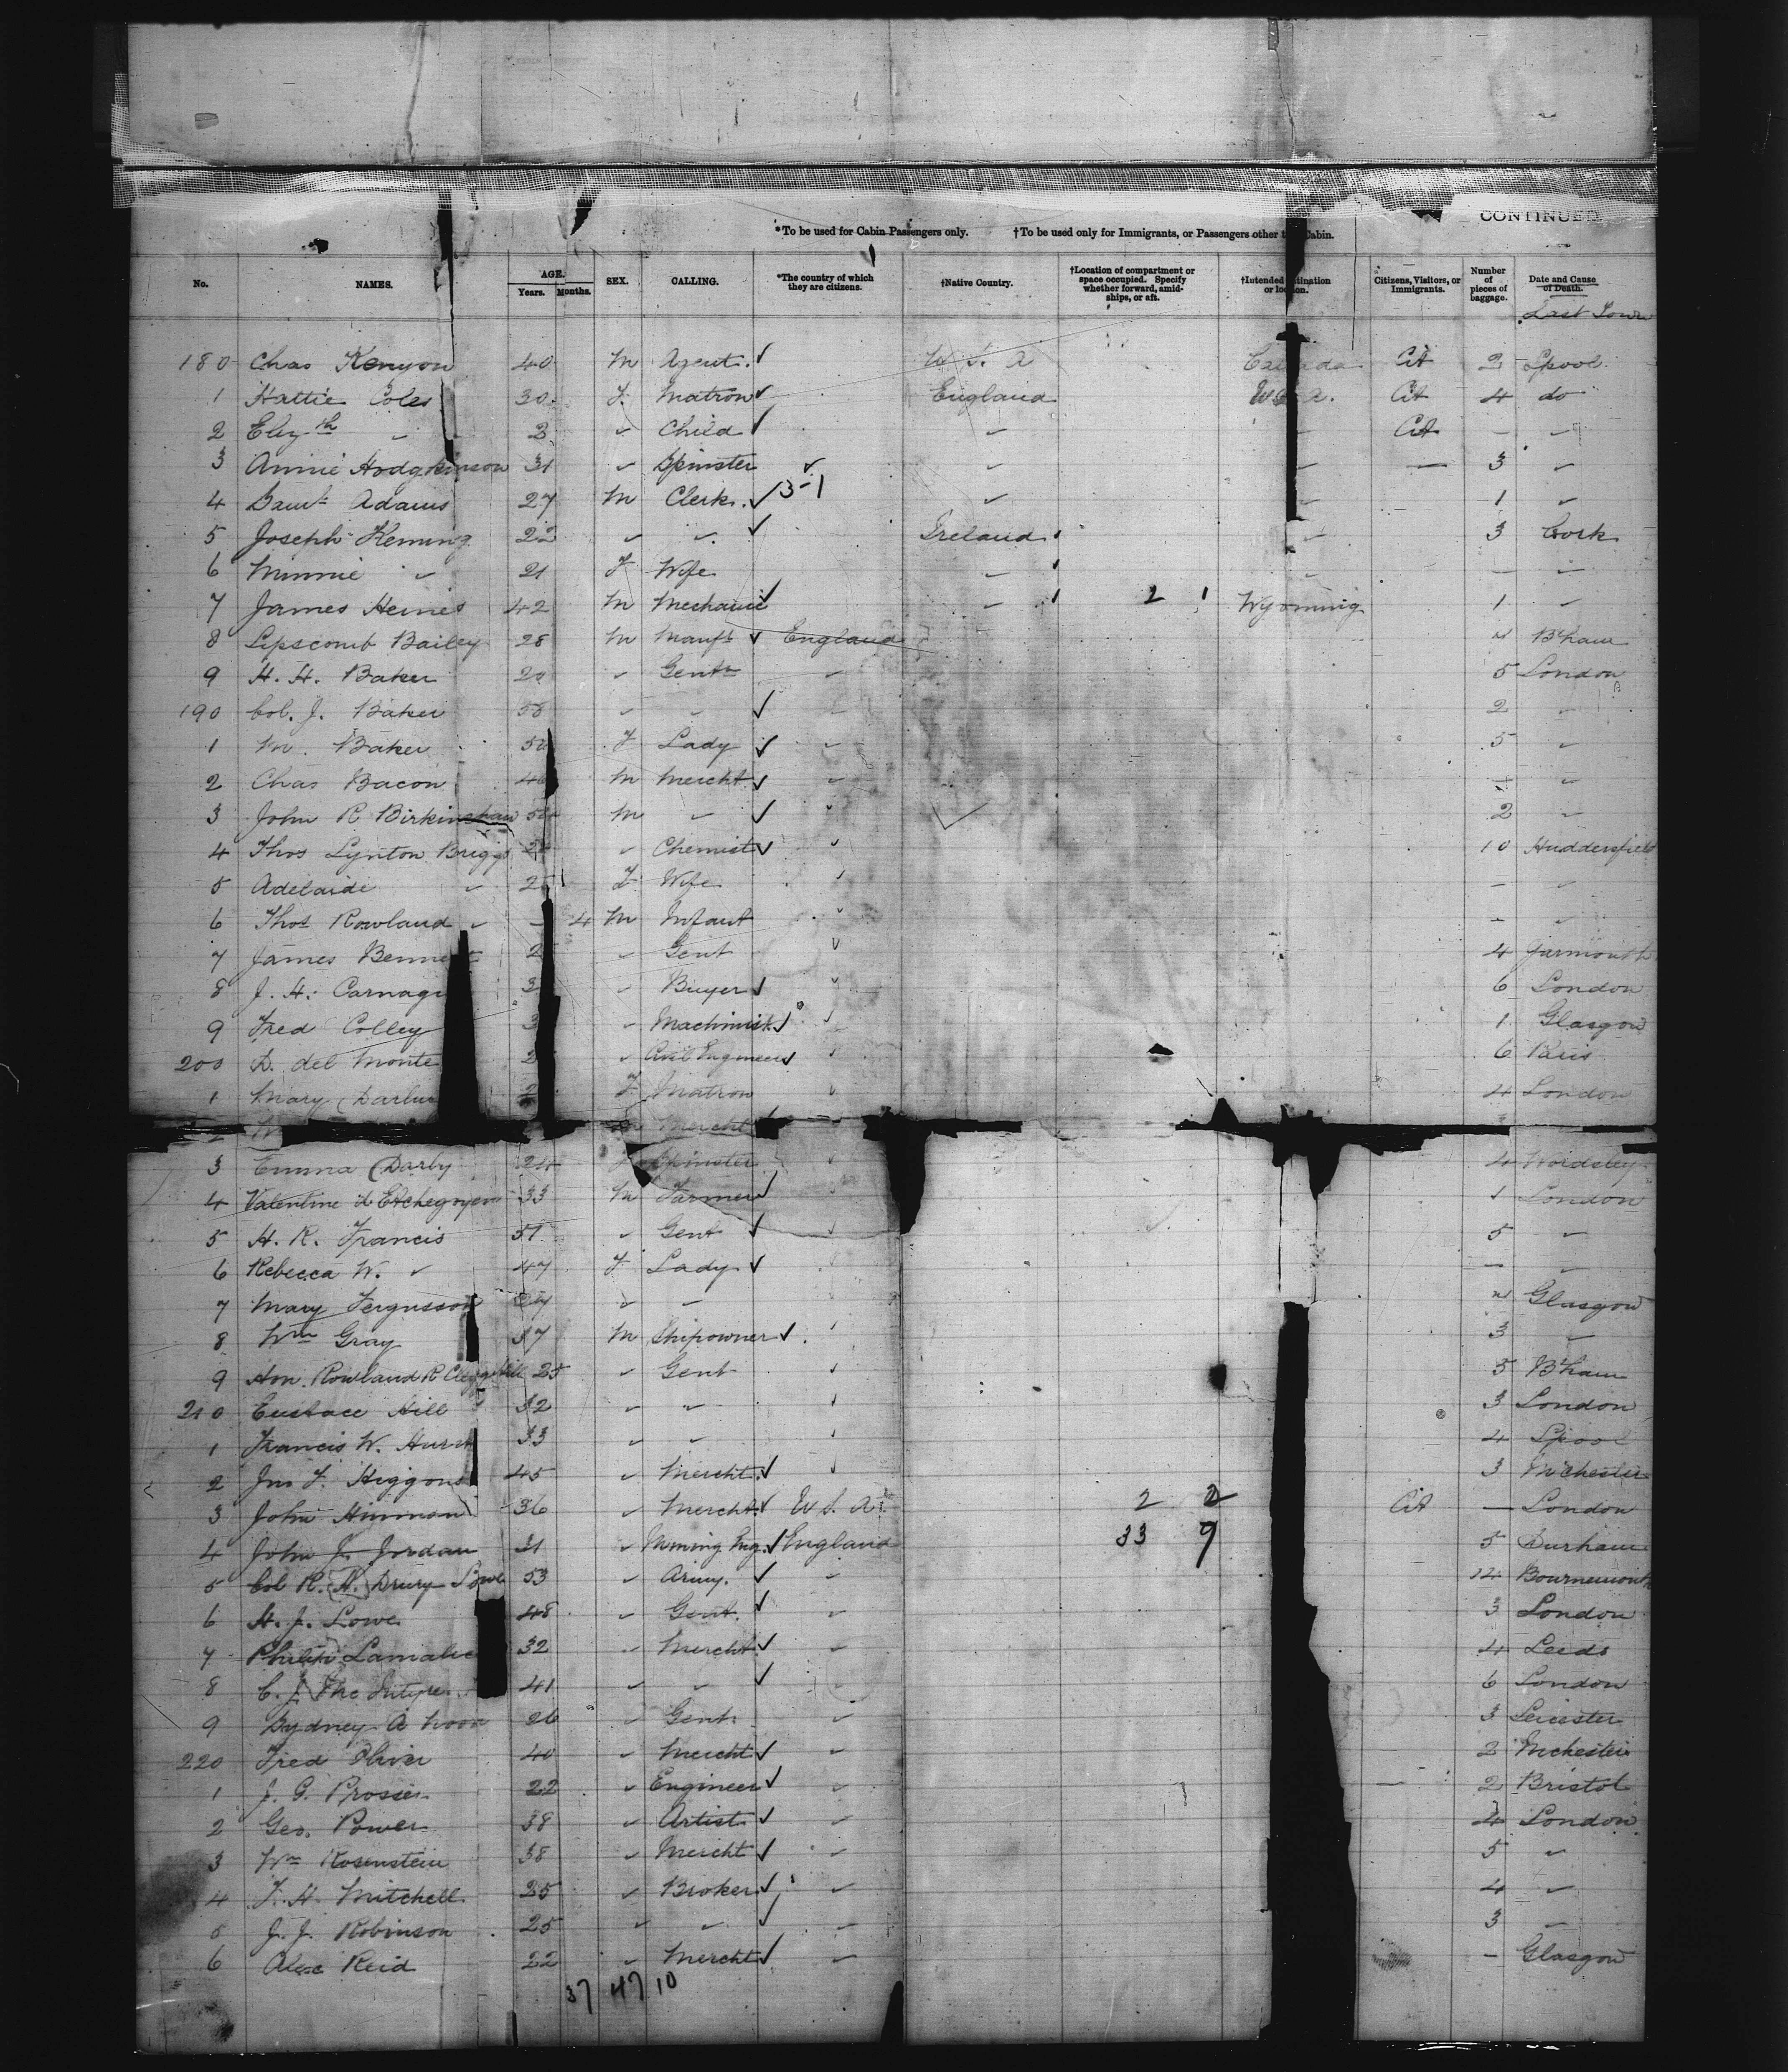 CONTINUED.
*To be used for Cabin Passengers only. †To be used only for Immigrants, or Passengers other Cabin.
No. NAMES. AGE. Years. Months. SEX. CALLING. *The country of which they are citizens. †Native Country. †Location of compartment or space occupied. Specify whether forward, amidships, or aft. †Intended Citizens, Visitors, or Immigrants. Number of pieces of baggage. Date and Cause of Death.
Last Town
180 Chas Kenyon 40 M Agent. ✓ U. S. A Canada Cit 2 Lpool
1 Hattie Coles 30 F. Matron ✓ England U.S.A. Cit 4 do
2 Elizth " 3 " Child ✓ " " Cit — "
3 Annie Hodgkinson 31 " Spinster ✓ " " — 3 "
4 Saml Adams 27 M Clerk. ✓ 3-1 " " 1 "
5 Joseph Heming 22 " " ✓ Ireland " 3 Cork
6 Minnie " 21 F Wife " " — "
7 James 42 M Mechanic ✓ " 2 1 Wyoming 1 "
8 Lipscomb Bailey 28 M Manfr ✓ England B'ham
9 H. H. Baker " Gentn " 5 London
190 Col. J. Baker 58 " " ✓ 2 "
1 M. Baker F Lady ✓ " 5 "
2 Chas Bacon M Mercht ✓ " — "
3 John R Birkinshaw M " ✓ " 2 "
4 Thos Lynton Briggs " Chemist ✓ " 10 Huddersfield
5 Adelaide " F Wife " — "
6 Thos Rowland " — 4 M Infant " — "
7 James Bennett " Gent " 4 Yarmouth
8 J. H. " Buyer ✓ " 6 London
9 Fred Colley " Machinist ✓ " 1 Glasgow
200 D. del Monte " Civil Engineer ✓ " 6 Paris
1 Mary F Matron " 4 London
2 Mercht
3 Emma Darby 24 F Spinster " 4 Wordsley
4 Valentine 33 M Farmer ✓ 1 London
5 H. R. Francis 51 " Gent ✓ " 5 "
6 Rebecca W. " 47 F Lady ✓ — "
7 Mary Fergusson " " Glasgow
8 Wm Gray 37 M Shipowner ✓ " 3 "
9 Hon. Rowland R 25 " Gent " 5 B'ham
210 Eustace Hill 32 " " " 3 London
1 Francis W. Hurst 33 " " " 4 Lpool
2 Jno F. Higgons 45 " Mercht. ✓ " 3 M'chester
3 John Hinman 36 " Mercht. ✓ U. S. A. 2 2 Cit — London
4 John J. Jordan 31 " Mining Eng. ✓ England 33 9 5 Durham
5 Col R. Drury Lowe 53 " Army. ✓ " 14 Bournemouth
6 H. J. Lowe 48 " Gent. ✓ " 3 London
7 32 " Mercht ✓ " 4 Leeds
8 C. J. 41 " " ✓ " 6 London
9 Sydney A 26 " Gent. " 3 Leicester
220 Fred Oliver 40 " Mercht ✓ " 2 Mchester
1 J. G. Prosser 22 " Engineer ✓ " 2 Bristol
2 Geo. Power 38 " Artist ✓ " 4 London
3 Wm Rosenstein 38 " Mercht ✓ " 5 "
4 F. H. Mitchell 25 " Broker ✓ " 4 "
5 J. J. Robinson 25 " " ✓ " 3 "
6 Alex Reid 22 " Mercht ✓ " — Glasgow
37 47 10